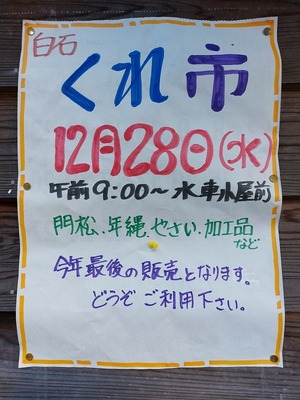 白石
くれ市
12月28日(水)
午前9:00～水車小屋前
門松、年縄、やさい、加工品
など
今年最後の販売となります。
どうぞご利用下さい。